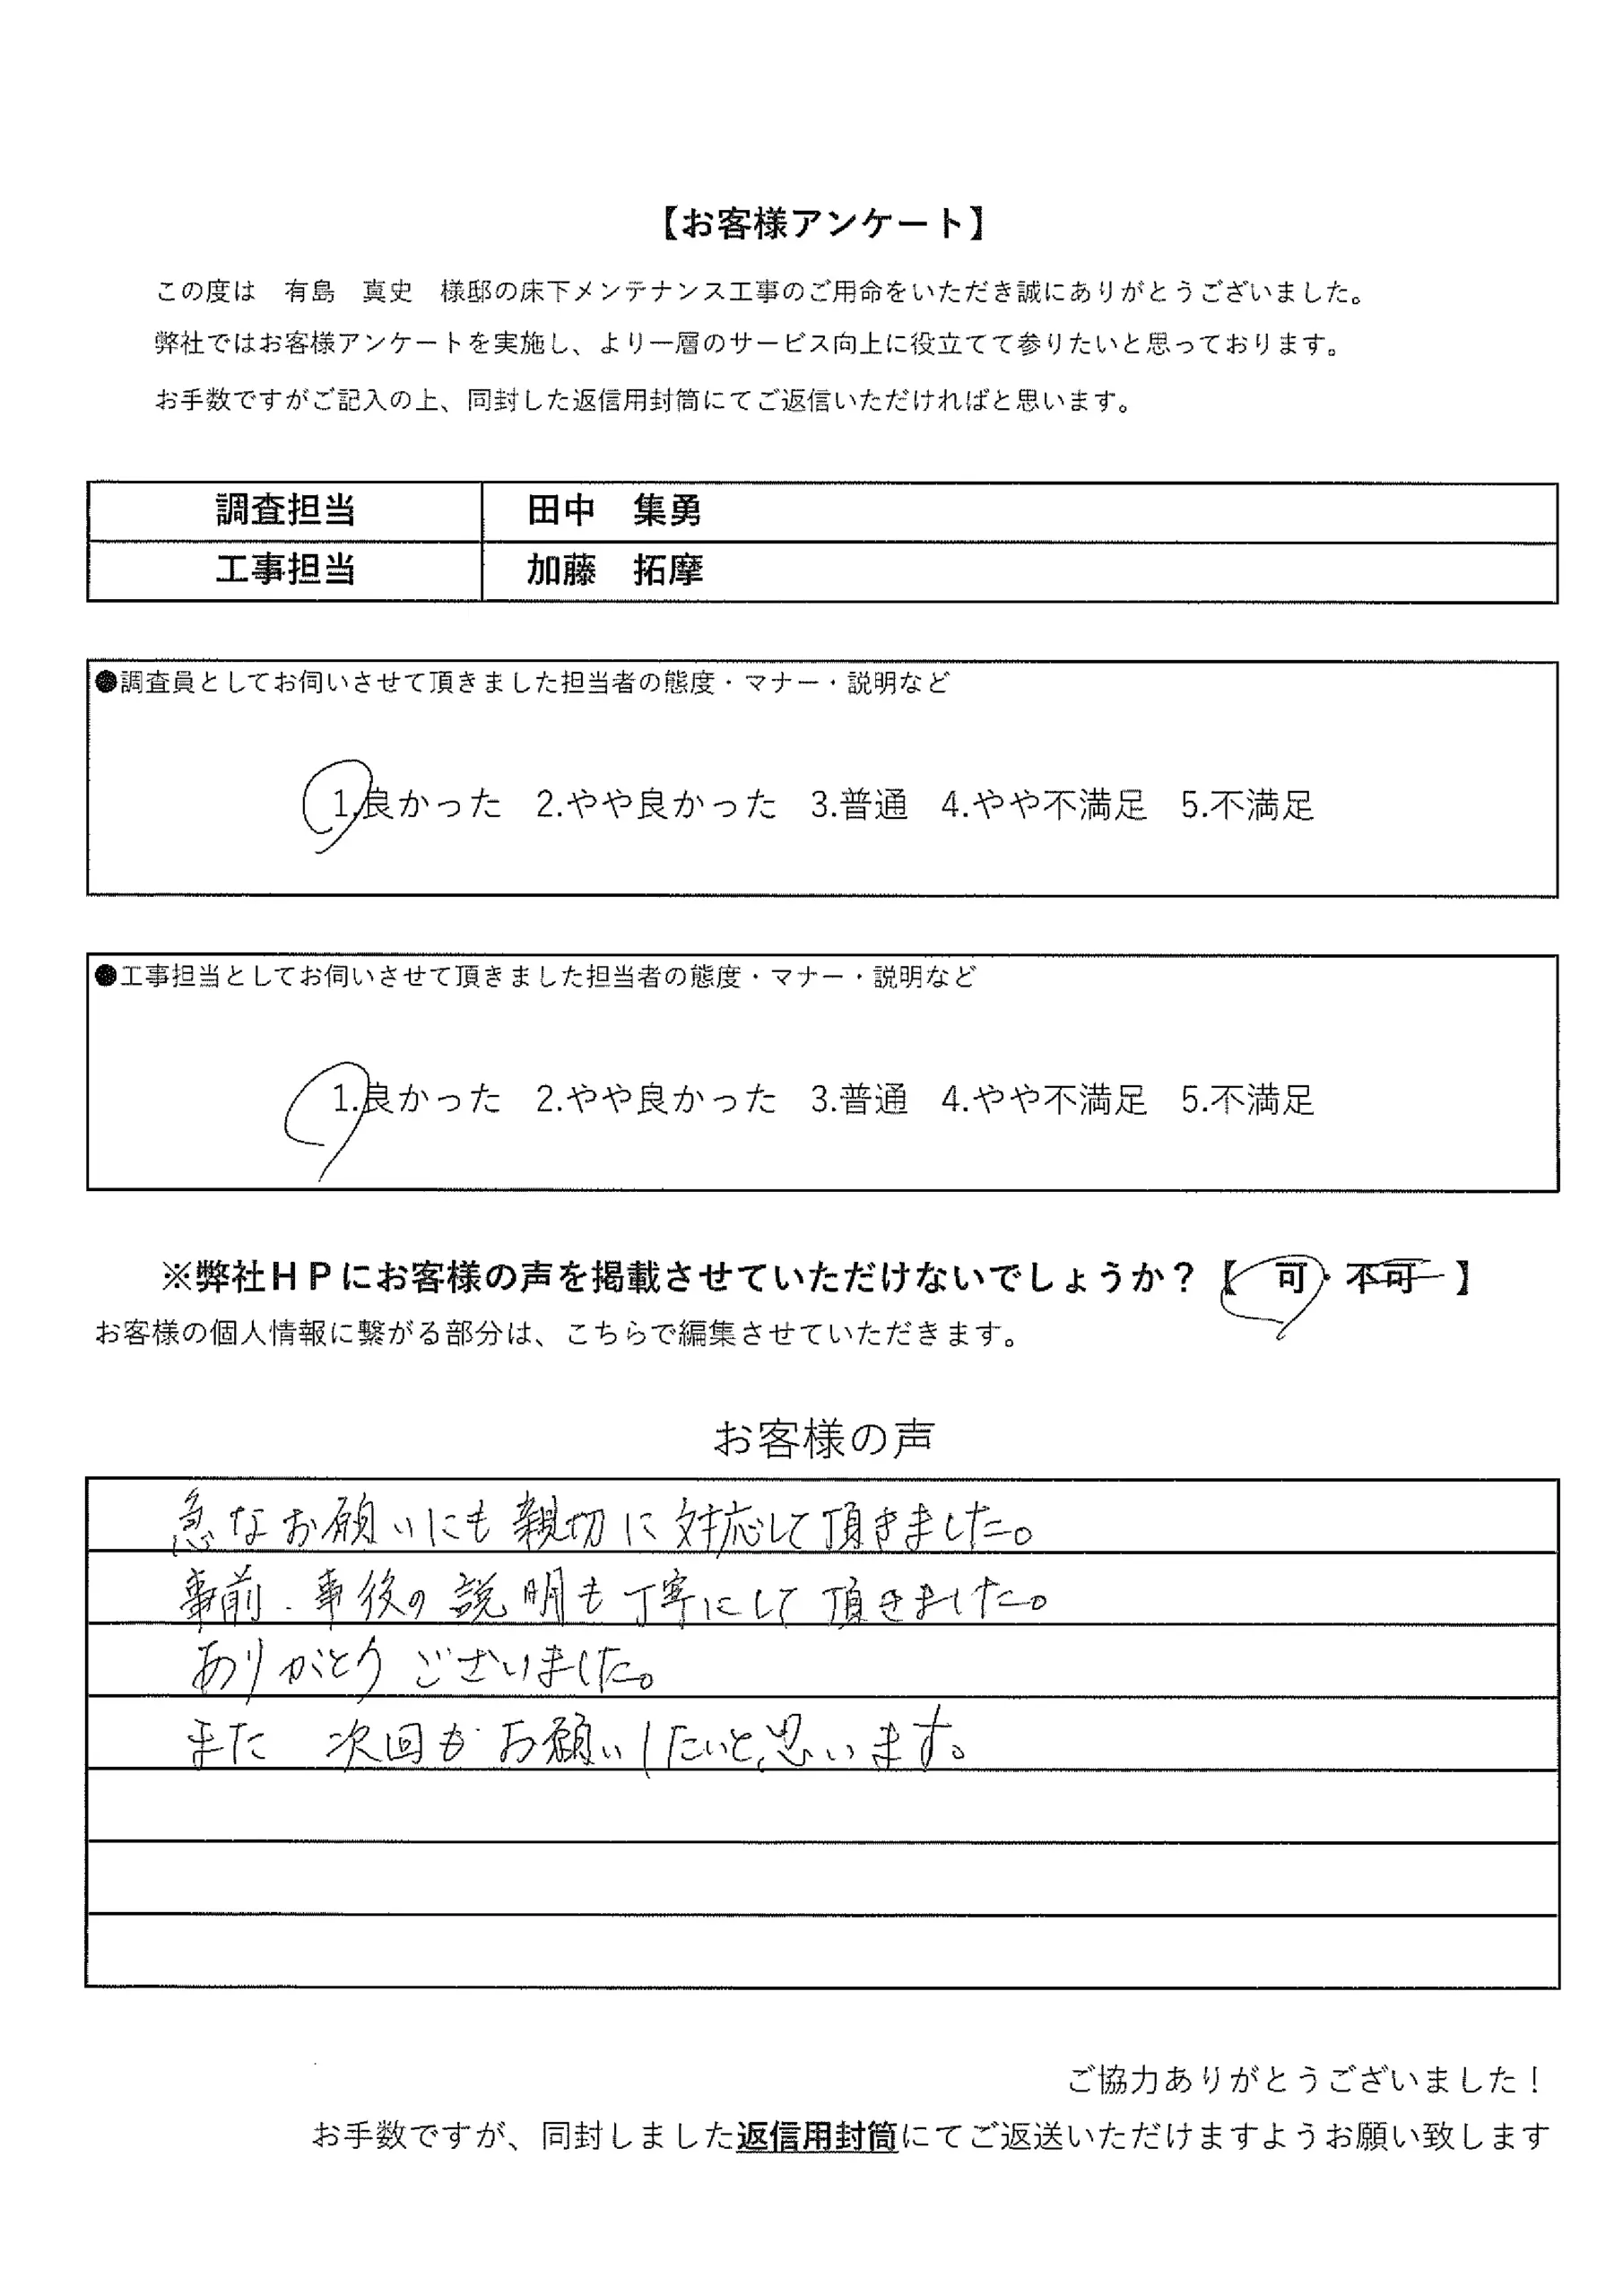 【お客様アンケート】
この度は　有島　真史　様邸の床下メンテナンス工事のご用命をいただき誠にありがとうございました。
弊社ではお客様アンケートを実施し、より一層のサービス向上に役立てて参りたいと思っております。
お手数ですがご記入の上、同封した返信用封筒にてご返信いただければと思います。
調査担当　田中　集勇
工事担当　加藤　拓摩
●調査員としてお伺いさせて頂きました担当者の態度・マナー・説明など
1.良かった　2.やや良かった　3.普通　4.やや不満足　5.不満足
●工事担当としてお伺いさせて頂きました担当者の態度・マナー・説明など
1.良かった　2.やや良かった　3.普通　4.やや不満足　5.不満足
※弊社ＨＰにお客様の声を掲載させていただけないでしょうか？【　可・不可　】
お客様の個人情報に繋がる部分は、こちらで編集させていただきます。
お客様の声
急なお願いにも親切に対応して頂きました。
事前・事後の説明も丁寧にして頂きました。
ありがとうございました。
また　次回もお願いしたいと思います。
ご協力ありがとうございました！
お手数ですが、同封しました返信用封筒にてご返送いただけますようお願い致します